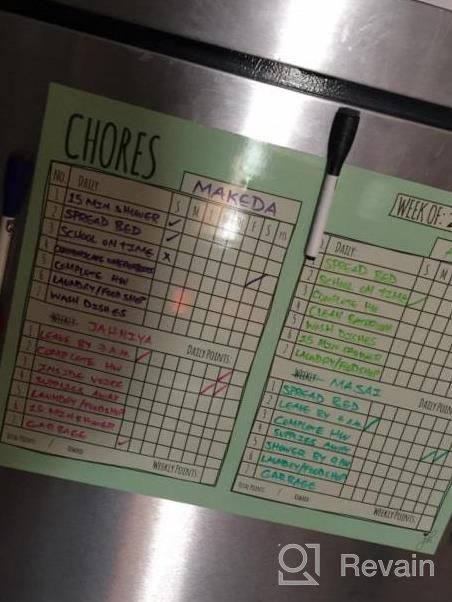 CHORES
MAKEDA
NO. DAILY: S M T W T F S PTS
1 15 MIN SHOWER ✓
2 SPREAD BED ✓
3 SCHOOL ON TIME X
4
5 COMPLETE HW
6 LAUNDRY/FOODSHOP
7 WASH DISHES
WEEKLY: JAHNIYA DAILY POINTS:
1 LEAVE BY 7 A.M. ✓
2 COMPLETE HW
3 INSIDE VOICE
4 SUPPLIES AWAY
5 LAUNDRY/FOODSHOP
6 15 MIN SHOWER
7 GARBAGE ✓
TOTAL POINTS: / REWARD: WEEKLY POINTS:
WEEK OF: 2
DAILY: S M
1 SPREAD BED
2 SCHOOL ON TIME ✓
3 COMPLETE HW
4 CLEAN BATHROOM
5 WASH DISHES
6 15 MIN SHOWER
7 LAUNDRY/FOODSHOP
WEEKLY: MASAI
1 SPREAD BED
2 LEAVE BY 7 AM ✓
3 COMPLETE HW
4 SUPPLIES AWAY
5 SHOWER BY 9 PM
6 LAUNDRY/FOODSHOP
7 GARBAGE
TOTAL POINTS: / REWARD: WEEKLY POINTS:
Revain